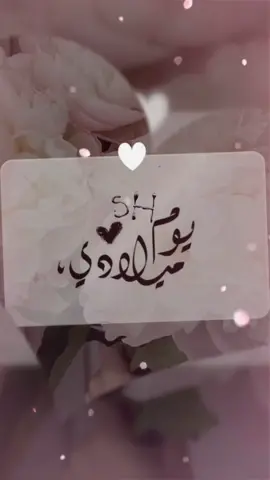 SH
يوم
ميلادي،